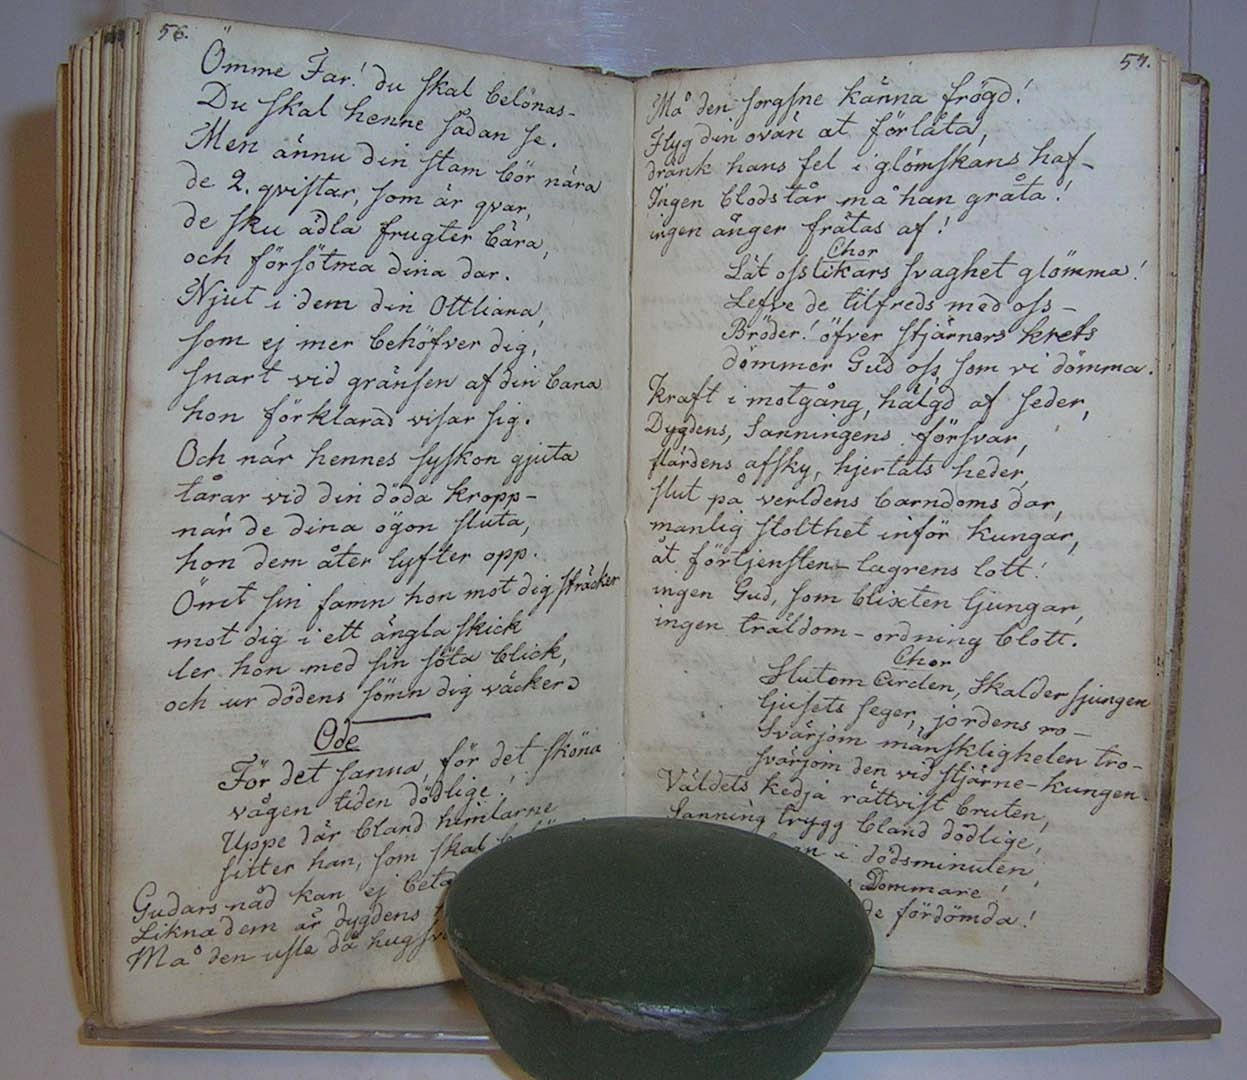 56.
Ömme Far! du skal belönas-
Du skal henne sådan se.
Men ännu din stam bör nära
de 2. qvistar, som är qvar,
de sku ädla frugter bära,
och försötma dina dar.
Njut i dem din Ottliana,
som ej mer behöfver dig,
snart vid gränsen af din bana
hon förklarad visar sig.
Och när hennes syskon gjuta
tårar vid din döda kropp-
när de dina ögon sluta,
hon dem åter lyfter opp.
Ömt sin famn hon mot dig sträcker
mot dig i ett ängla skick
ler hon med sin söta blick,
och ur dödens sömn dig väcker
Ode
För det sanna, för det sköna
vägen tiden dödlige!
Uppe där bland himlarne
sitter han, som skal
Gudars nåd kan ej
Likna dem är dygdens
Må den usle då
57.
Må den sorgsne känna frögd!
Flyg din ovän at förlåta,
dränk hans fel i glömskans haf-
Ingen blods tår må han gråta!
ingen ånger frätas af!
Chor
Låt oss likars svaghet glömma!
Lefve de tilfreds med oss-
Bröder! öfver stjärnors krets
dömmer Gud oss som vi dömma.
Kraft i motgång, hälgd af seder,
Dygdens, Sanningens försvar,
flärdens afsky, hjertats heder,
slut på verldens barndoms dar,
manlig stolthet inför kungar,
åt förtjensten- lagrens lott!
ingen Gud, som blixten ljungar,
ingen träldom- ordning blott.
Chor
Slutom Circlen, Skalder sjungen
ljusets seger, jordens ro-
Svärjom mänskligheten tro-
svärjom den vid stjärne-kungen.
Väldets kedja rättvist bruten,
Sanning trygg bland dödlige,
i dödsminuten,
Dommare!
de fördömda!